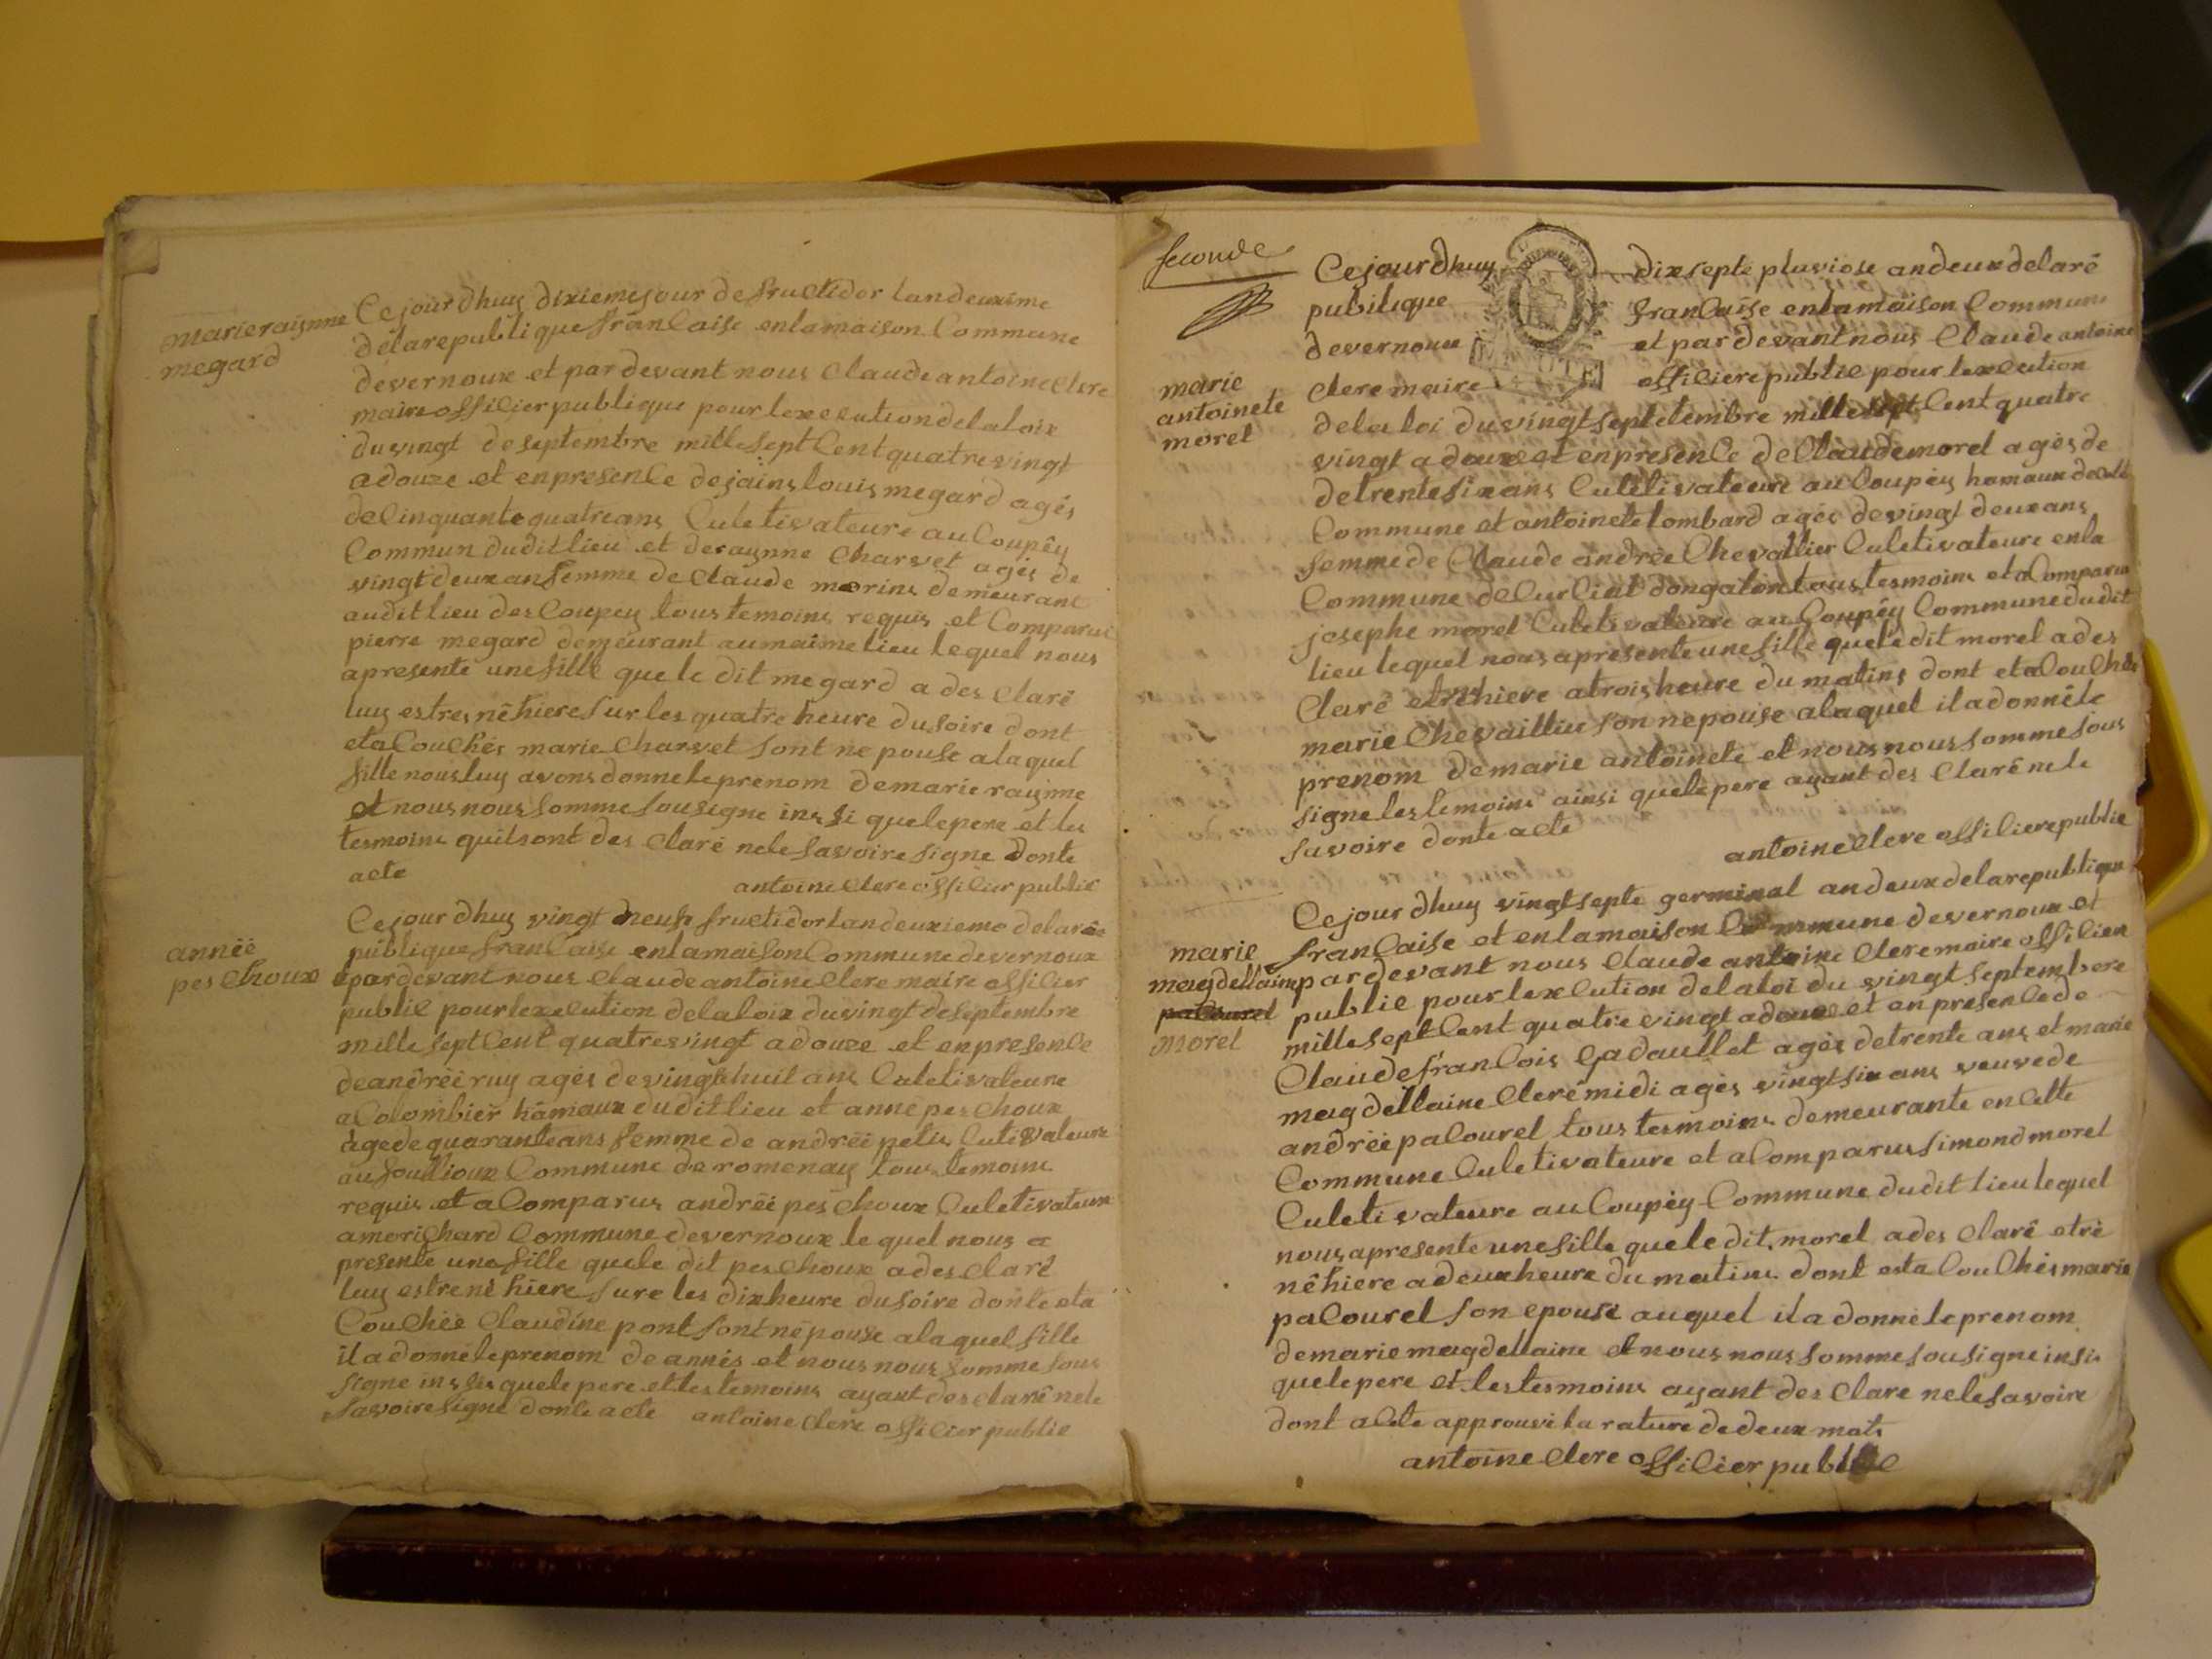 marie raiynne
megard
Ce jour dhuy dixieme jour de fructidor lan deuxsime
de la republique franCaise en la maison Commune
de vernoux et par devant nous Claude antoine Clere
maire offilier publique pour lexecution de la loix
du vingt de septembre mille sept Cent quatre vingt
a douze et en presenCe de jains louis megard agés
de Cinquante quatre ans Culetivateure au Coupêy
Commun dudit lieu et de raynne Charvet agés de
vingt deux an femme de Claude morins demeurant
audit lieu des Coupey tous temoins requis et Comparus
pierre megard demeurant au maime lieu lequel nous
a presente une fille que le dit megard a des Claré
luy estres né hiere sur les quatre heure du soire dont
et a CouChés marie Charvet sont ne pouse a la quel
fille nous luy avons donne le prenom de marie raynne
et nous nous somme sousigne inssi que le pere et les
tesmoins quil sont des Claré ne le savoire signe donte
acte
antoine Clere offilier public
année
pes Choux
Ce jour dhuy vingt neufs fructidor lan deuxieme de la ré
publique franCaise en la maison Commune de vernoux
e par devant nous Claude antoine Clere maire offilier
public pour lexecution de la loix du vingt de septembre
mille sept Cent quatre vingt a douze et en presenCe
de andréé ruy agés de vingt huit ans Culetivateure
a Colombier hamaux dudit lieu et anne pes Choux
age de quarante ans femme de andréé petis Cutivateure
au soullioux Commune de romenay tous temoins
requis et a Comparus andréé pes Choux Culetivateure
a moriChard Commune de vernoux le quel nous a
presente une fille que le dit pes Choux a des Claré
luy estre né hiere sure les dix heure du soire donte eta
CouChée Claudine pont sont ne pouse a la quel fille
il a donné le prenom de annés et nous nous somme sous
signe inssis que le pere et les temoins ayant des Claré ne le
savoire signe donte acte antoine Clere offilier public
seconde
marie
antoinete
morel
Ce jour dhuy dix septe pluviose an deux de la ré
pubilique franCaise en la maison Commune
de vernoux et par devant nous Claude antoine
Clere maire offiliere public pour lexCution
de la loi du vingt septetembre mille sept Cent quatre
vingt a douze et en presenCe de Claude morel agés de
de trente six ans Culetivateure au Coupêy hamaux de Cete
Commune et antoinete lombard agés de vingt deux ans
femme de Claude andrée Chevallier Culetivateure en la
Commune de Curliat dongalon tous tesmoins et a Comparus
josephe morel Culetivateure au Coupêy Commune dudit
lieu lequel nous a presente une fille que le dit morel a des
Claré etre hiere a trois heure du matins dont et a CouChés
marie Chevaillier son nepouse a la quel il a donné le
prenom de marie antoinete et nous nous somme sous
signe les temoins ainsi que le pere ayant des Claré ne le
savoire donte acte
antoine Clere offiliere public
marie
magdellaine
paCourel
morel
Ce jour dhuy vingt septe germinal an deux de la republique
franCaise et en la maison Commune de vernoux et
par devant nous Claude antoine Clere maire offilier
public pour lexCution de la loi du vingt septembere
mille sept Cent quatre vingt a douze et en presenCe de
Claude franCois Gadaullet agés de trente ans et marie
magdellaine Clerémidi agés vingt six ans veuve de
andréé paCourel tous tesmoins demeurante en Cette
Commune Culetivateure et a Comparus simond morel
Culetivateure au Coupêy Commune dudit lieu lequel
nous a presente une fille que le dit morel a des Claré etré
né hiere a deux heure du matins dont esta CouChés marie
paCourel son epouse au quel il a donné le prenom
de marie magdellaine et nous nous somme sousigne insis
que le pere et les tesmoins ayant des Clare ne le savoire
dont acte approuve la rature de deux mots
antoine Clere offilier public